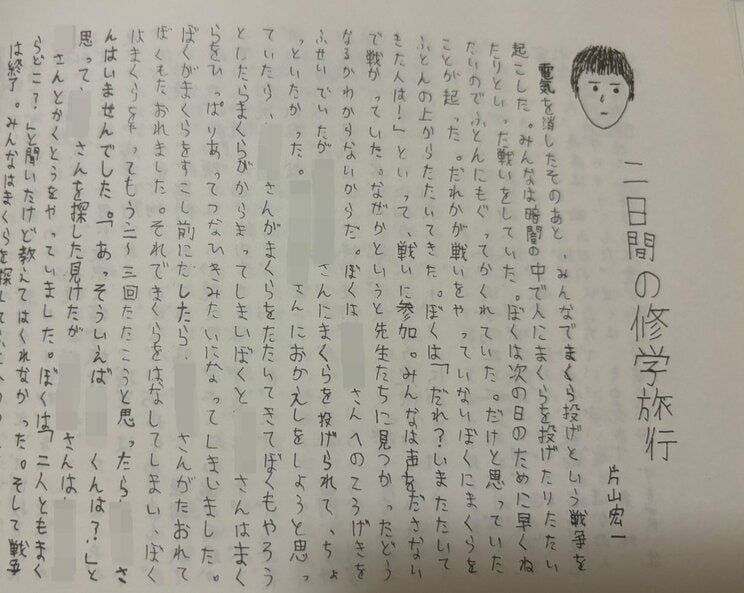 二日間の修学旅行
片山宏一
電気を消したそのあと、みんなでまくら投げという戦争を
起こした。みんなは暗闇の中で人にまくらを投げたりたたい
たりといった戦いをしていた。ぼくは次の日のために早くね
たいのでふとんにもぐってかくれていた。だけと思っていた
ことが起った。だれかが戦いをやっていないぼくにまくらを
ふとんの上からたたいてきた。ぼくは「だれ？いまたたいて
きた人は！」といって、戦いに参加。みんなは声をださない
で戦がっていた。なぜかというと先生たちに見つかったどう
なるかわからないからだ。ぼくは さんへのこうげきを
ふせいでいたが さんにまくらを投げられて、ちょ
っといたかった。 さんにおかえしをしようと思っ
ていたら、 さんがまくらをたたいてきてぼくもやろう
としたらまくらがからまってしまいぼくと さんはまく
らをひっぱりあってつなひきみたいになってしまいました。
ぼくがまくらをすこし前にだしたら、 さんがたおれて
ぼくもたおれました。それでまくらをはなしてしまい、ぼく
はまくらをもってもう二〜三回たたこうと思ったら さ
んはいませんでした。「あっそういえば くんは？」と
思って、 さんを探した見けたが さんは
さんとかくとうをやっていました。ぼくは「二人ともまく
らどこ？」と聞いたけど教えてはくれなかった。そして戦争
は終了。みんなはまくらを探して